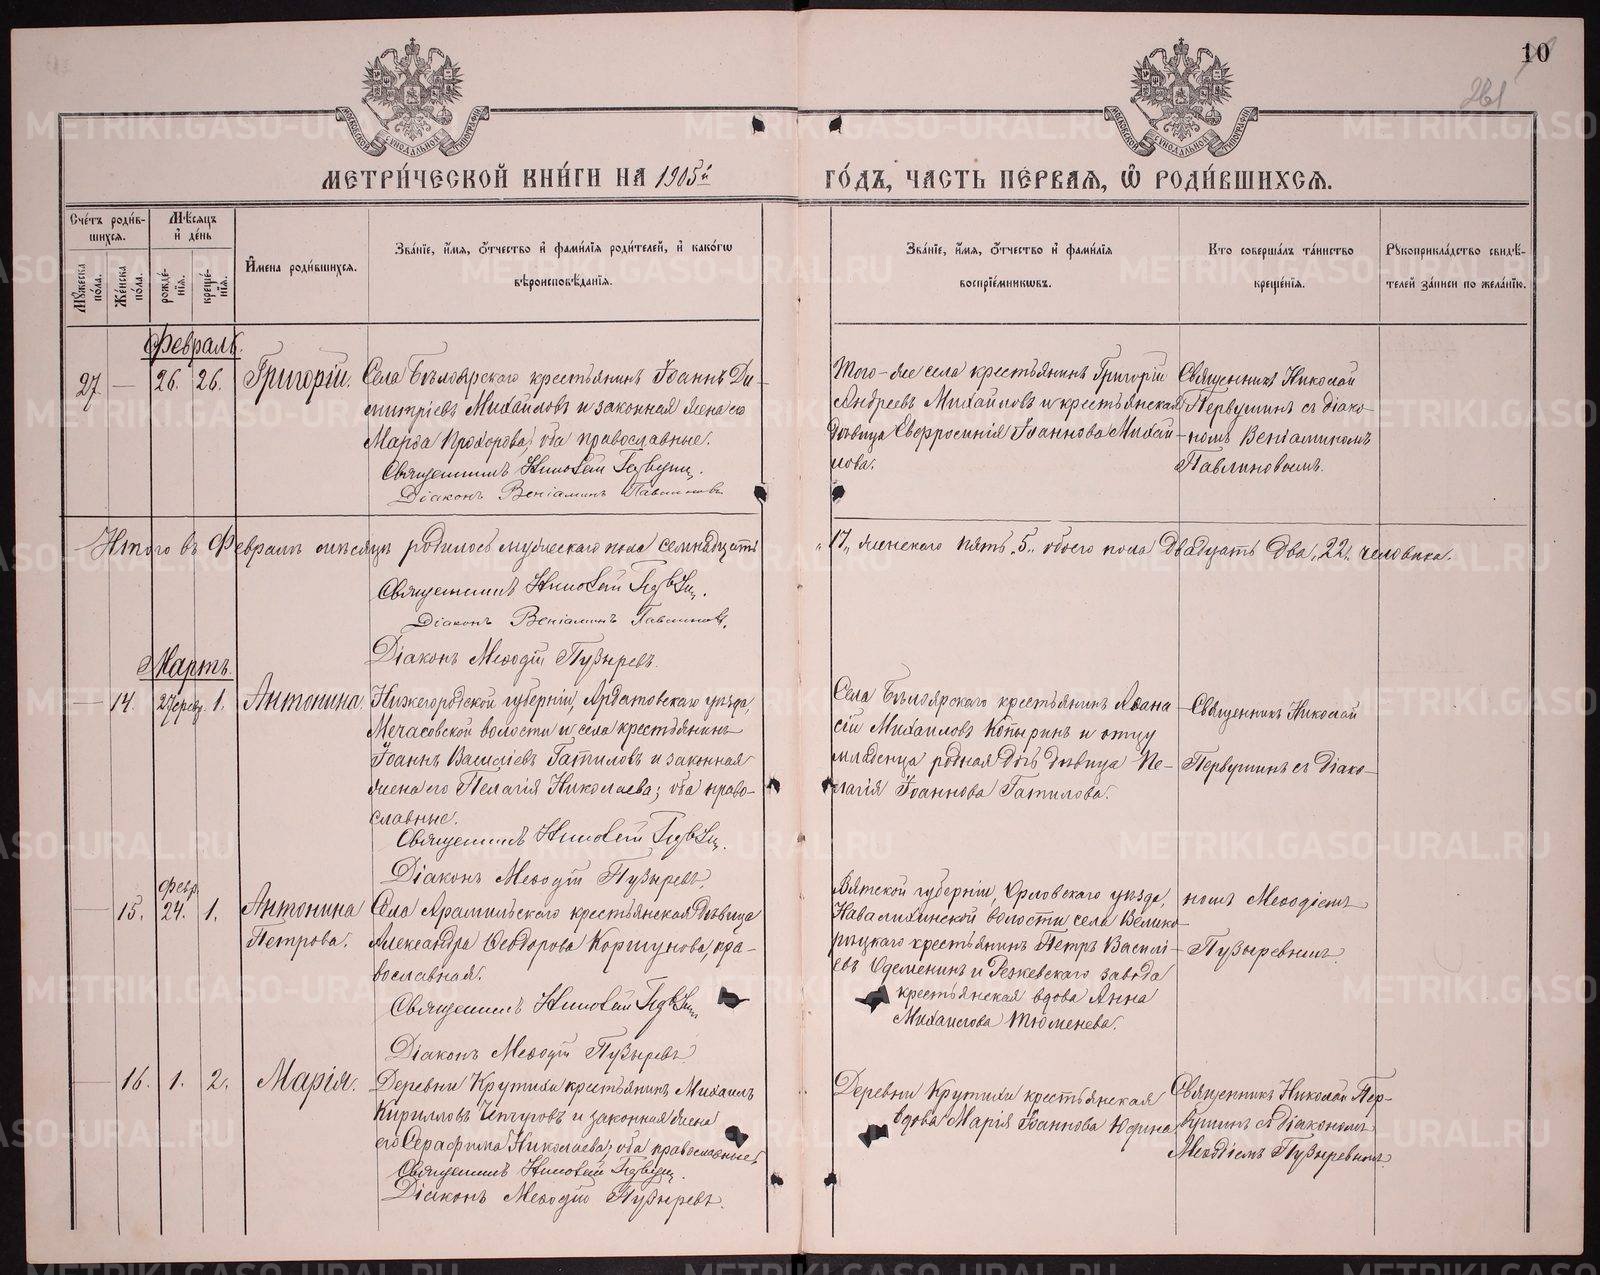 10
261
МОСКОВСКОЙ СѴНОДАЛЬНОЙ ТИПОГРАФІИ
МОСКОВСКОЙ СѴНОДАЛЬНОЙ ТИПОГРАФІИ
МЕТРИ́ЧЕСКОЙ КНИ́ГИ НА 1905й ГО́ДЪ, ЧАСТЬ ПЕ́РВАЯ, Ѡ РОДИ́ВШИХСЯ.
Сче́тъ роди́в-
шихся.
Мꙋжеска по́ла.
Же́нска по́ла.
Мѣ́сяцъ
и҆ де́нь
рожде́-
нїя.
креще́-
нїя.
И҆мена роди́вшихся.
Зва́нїе, и҆́мя, ѻ҆́тчество и҆ фами́лїя роди́телей, и҆ како́гѡ
вѣроисповѣ́данїя.
Зва́нїе, и҆́мя, ѻ҆́тчество и҆ фами́лїя
воспрїе́мникѡвъ.
Кто соверша́лъ та́инство
креще́нїя.
Рꙋкоприкла́дство свидѣ́-
телей за́писи по жела́нїю.
Февраль.
27. — 26. 26. Григорій.
Села Бѣлоярскаго крестьянинъ Іоаннъ Ди-
митріевъ Михайловъ и законная жена его
Марѳа Прохорова, оба православные.
Священникъ Николай Первушин.
Діаконъ Веніаминъ Павлиновъ.
Того-же села крестьянинъ Григорій
Андреевъ Михайловъ и крестьянская
дѣвица Евфросинія Іоаннова Михай-
лова.
Священникъ Николай
Первушинъ съ діако-
номъ Веніаминомъ
Павлиновымъ.
Итого въ Февралѣ мѣсяцѣ родилось мужескаго пола семнадцать „17„ женскаго пять „5„ обоего пола двадцать два „22„ человѣка.
Священникъ Николай Первушин.
Діаконъ Веніаминъ Павлиновъ.
Діаконъ Меѳодій Пузыревъ.
Мартъ
— 14. 27 февр. 1. Антонина.
Нижегородской губерніи, Ардатовскаго уѣзда,
Мечасовской волости и села крестьянинъ
Іоаннъ Василіевъ Гатиловъ и законная
жена его Пелагія Николаева; оба право-
славные.
Священникъ Николай Первушин.
Діаконъ Меѳодій Пузыревъ.
Села Бѣлоярскаго крестьянинъ Аѳана-
сій Михайловъ Копыринъ и отцу
младенца родная дочь дѣвица Пе-
лагія Іоаннова Гатилова.
Священникъ Николай
Первушинъ съ діако-
— 15. Февр. 24. 1. Антонина
Петрова.
Села Арамильскаго крестьянская дѣвица
Александра Ѳеодорова Коршунова, пра-
вославная.
Священникъ Николай Первушин
Діаконъ Меѳодій Пузыревъ
Вятской губерніи, Орловскаго уѣзда,
волости села Велико-
рѣцкаго крестьянинъ Петръ Василі-
евъ и Режевскаго завода
крестьянская вдова Анна
Михаилова Тюменева.
номъ Меѳодіемъ
Пузыревымъ.
— 16. 1. 2. Марія.
Деревни Крутихи крестьянинъ Михаилъ
Кирилловъ Чепчуговъ и законная жена
его Серафима Николаева; оба православные.
Священникъ Николай Первушин.
Діаконъ Меѳодій Пузыревъ.
Деревни Крутихи крестьянская
вдова Марія Іоаннова Юдина
Священникъ Николай Пер-
вушинъ съ діакономъ
Меѳодіемъ Пузыревымъ.
METRIKI.GASO-URAL.RU